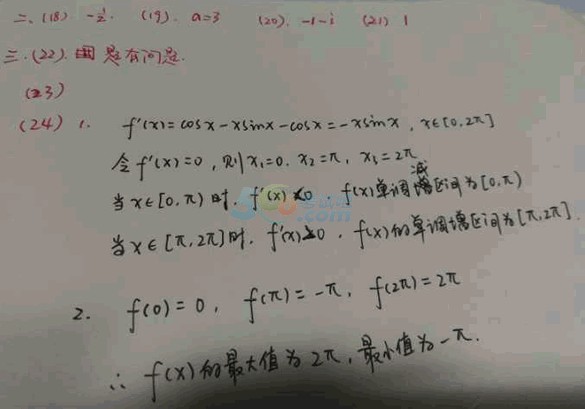 二、(18) -½. (19). a=3 (20). -1-i (21) 1
三.(22). 题有问题.
(23)
(24) 1. f'(x)=cosx-xsinx-cosx=-xsinx, x∈[0,2π]
令f'(x)=0, 则x₁=0. x₂=π, x₃=2π
减
当x∈[0,π)时. f'(x)<0. f(x)单调区间为[0,π)
当x∈[π,2π]时. f'(x)≥0. f(x)的单调增区间为[π,2π].
2. f(0)=0, f(π)=-π, f(2π)=2π
∴ f(x)的最大值为2π, 最小值为-π.